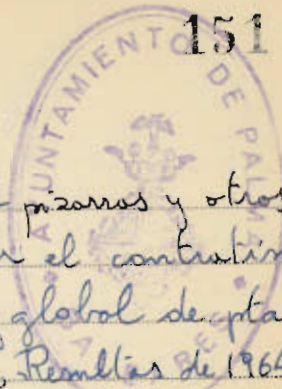 151
AYUNTAMIENTO DE PALMA
pizarras y otros
el
global de pta
Resultas de 1966